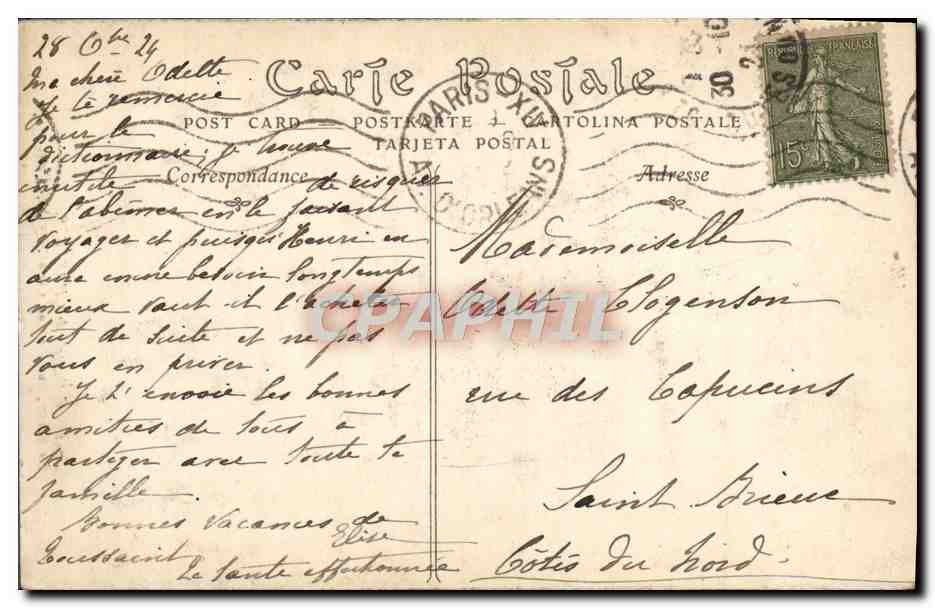 28 8bre 24
Ma chère Odette
Je te remercie
pour le
dictionnaire, je trouve
inutile de risquer
de l'abîmer en le faisant
voyager et puisqu'Henri en
aura encore besoin longtemps
mieux vaut-il l'acheter
tout de suite et ne pas
vous en priver.
Je t'envoie les bonnes
amitiés de tous à
partager avec toute ta
famille
Bonnes vacances de
Toussaint
Elise
Ta tante affectionnée
Carte Postale
POST CARD — POSTKARTE — CARTOLINA POSTALE
TARJETA POSTAL
Correspondance
Adresse
PARIS XIII
AV. D'ORLEANS
30
REPUBLIQUE FRANÇAISE
15c
Mademoiselle
Odette Clogenson
rue des Capucins
Saint Brieuc
Côtes du Nord
CPAPHIL